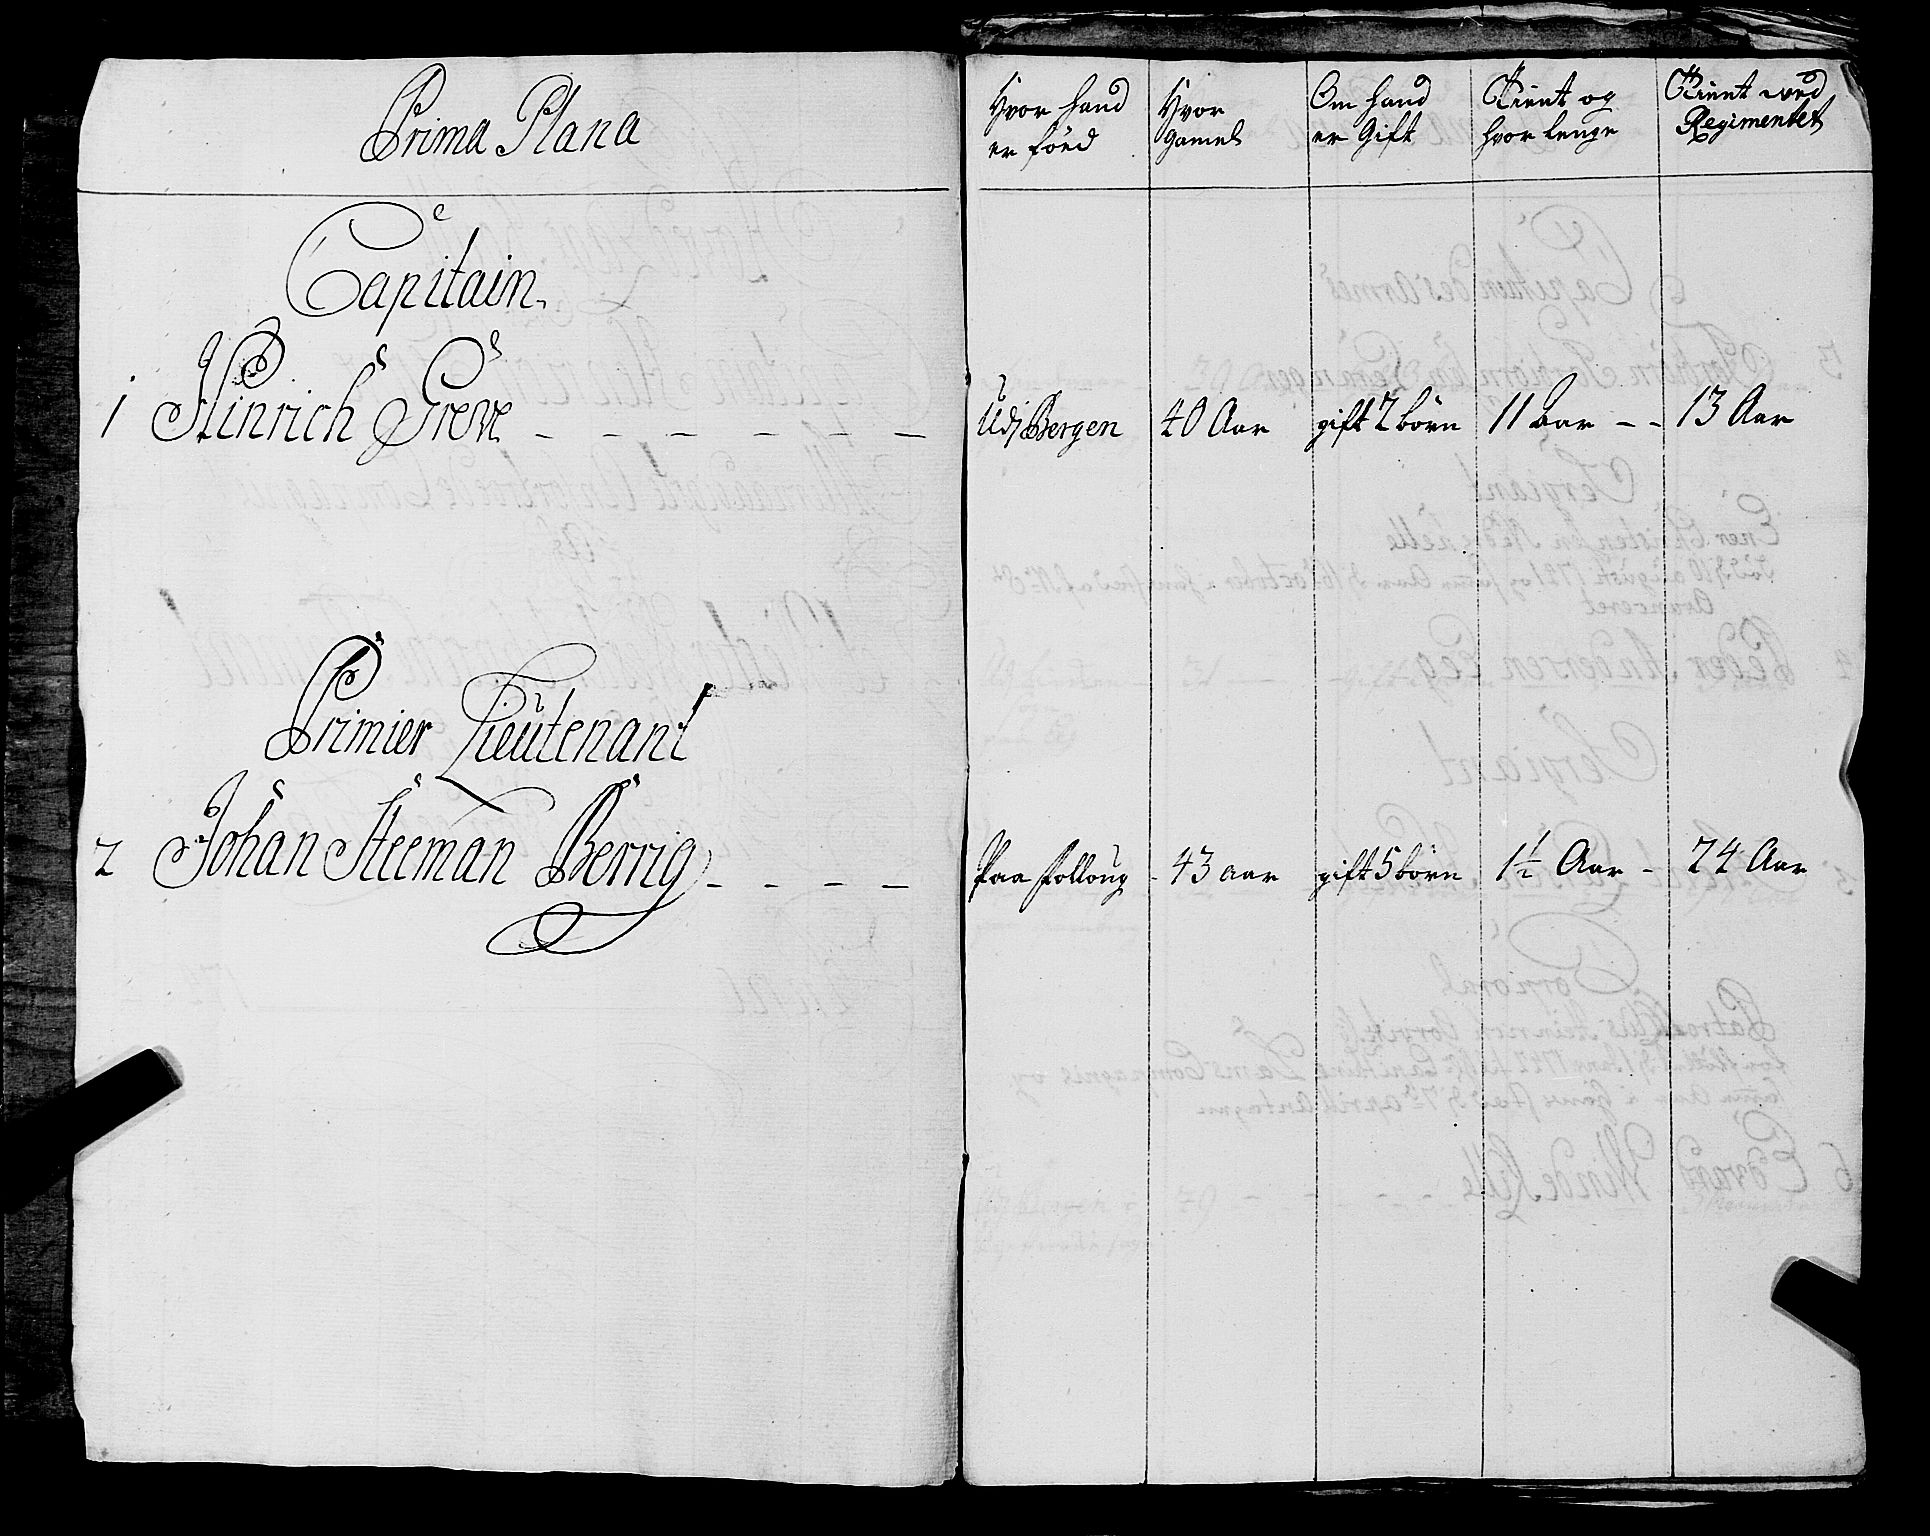 Prima Plana
Capitain.
1 Hinrich Greve
Primier Lieutenant
2 Johan Steeman Berrig
Hvor hand er föed
Hvor gamel
Om hand er Gift
Tient og hvor lenge
Tient ved Regimentet
Udj Bergen 40 Aar gift 2 börn 11 Aar 13 Aar
Paa 43 aar gift 5 börn 1½ Aar 24 Aar